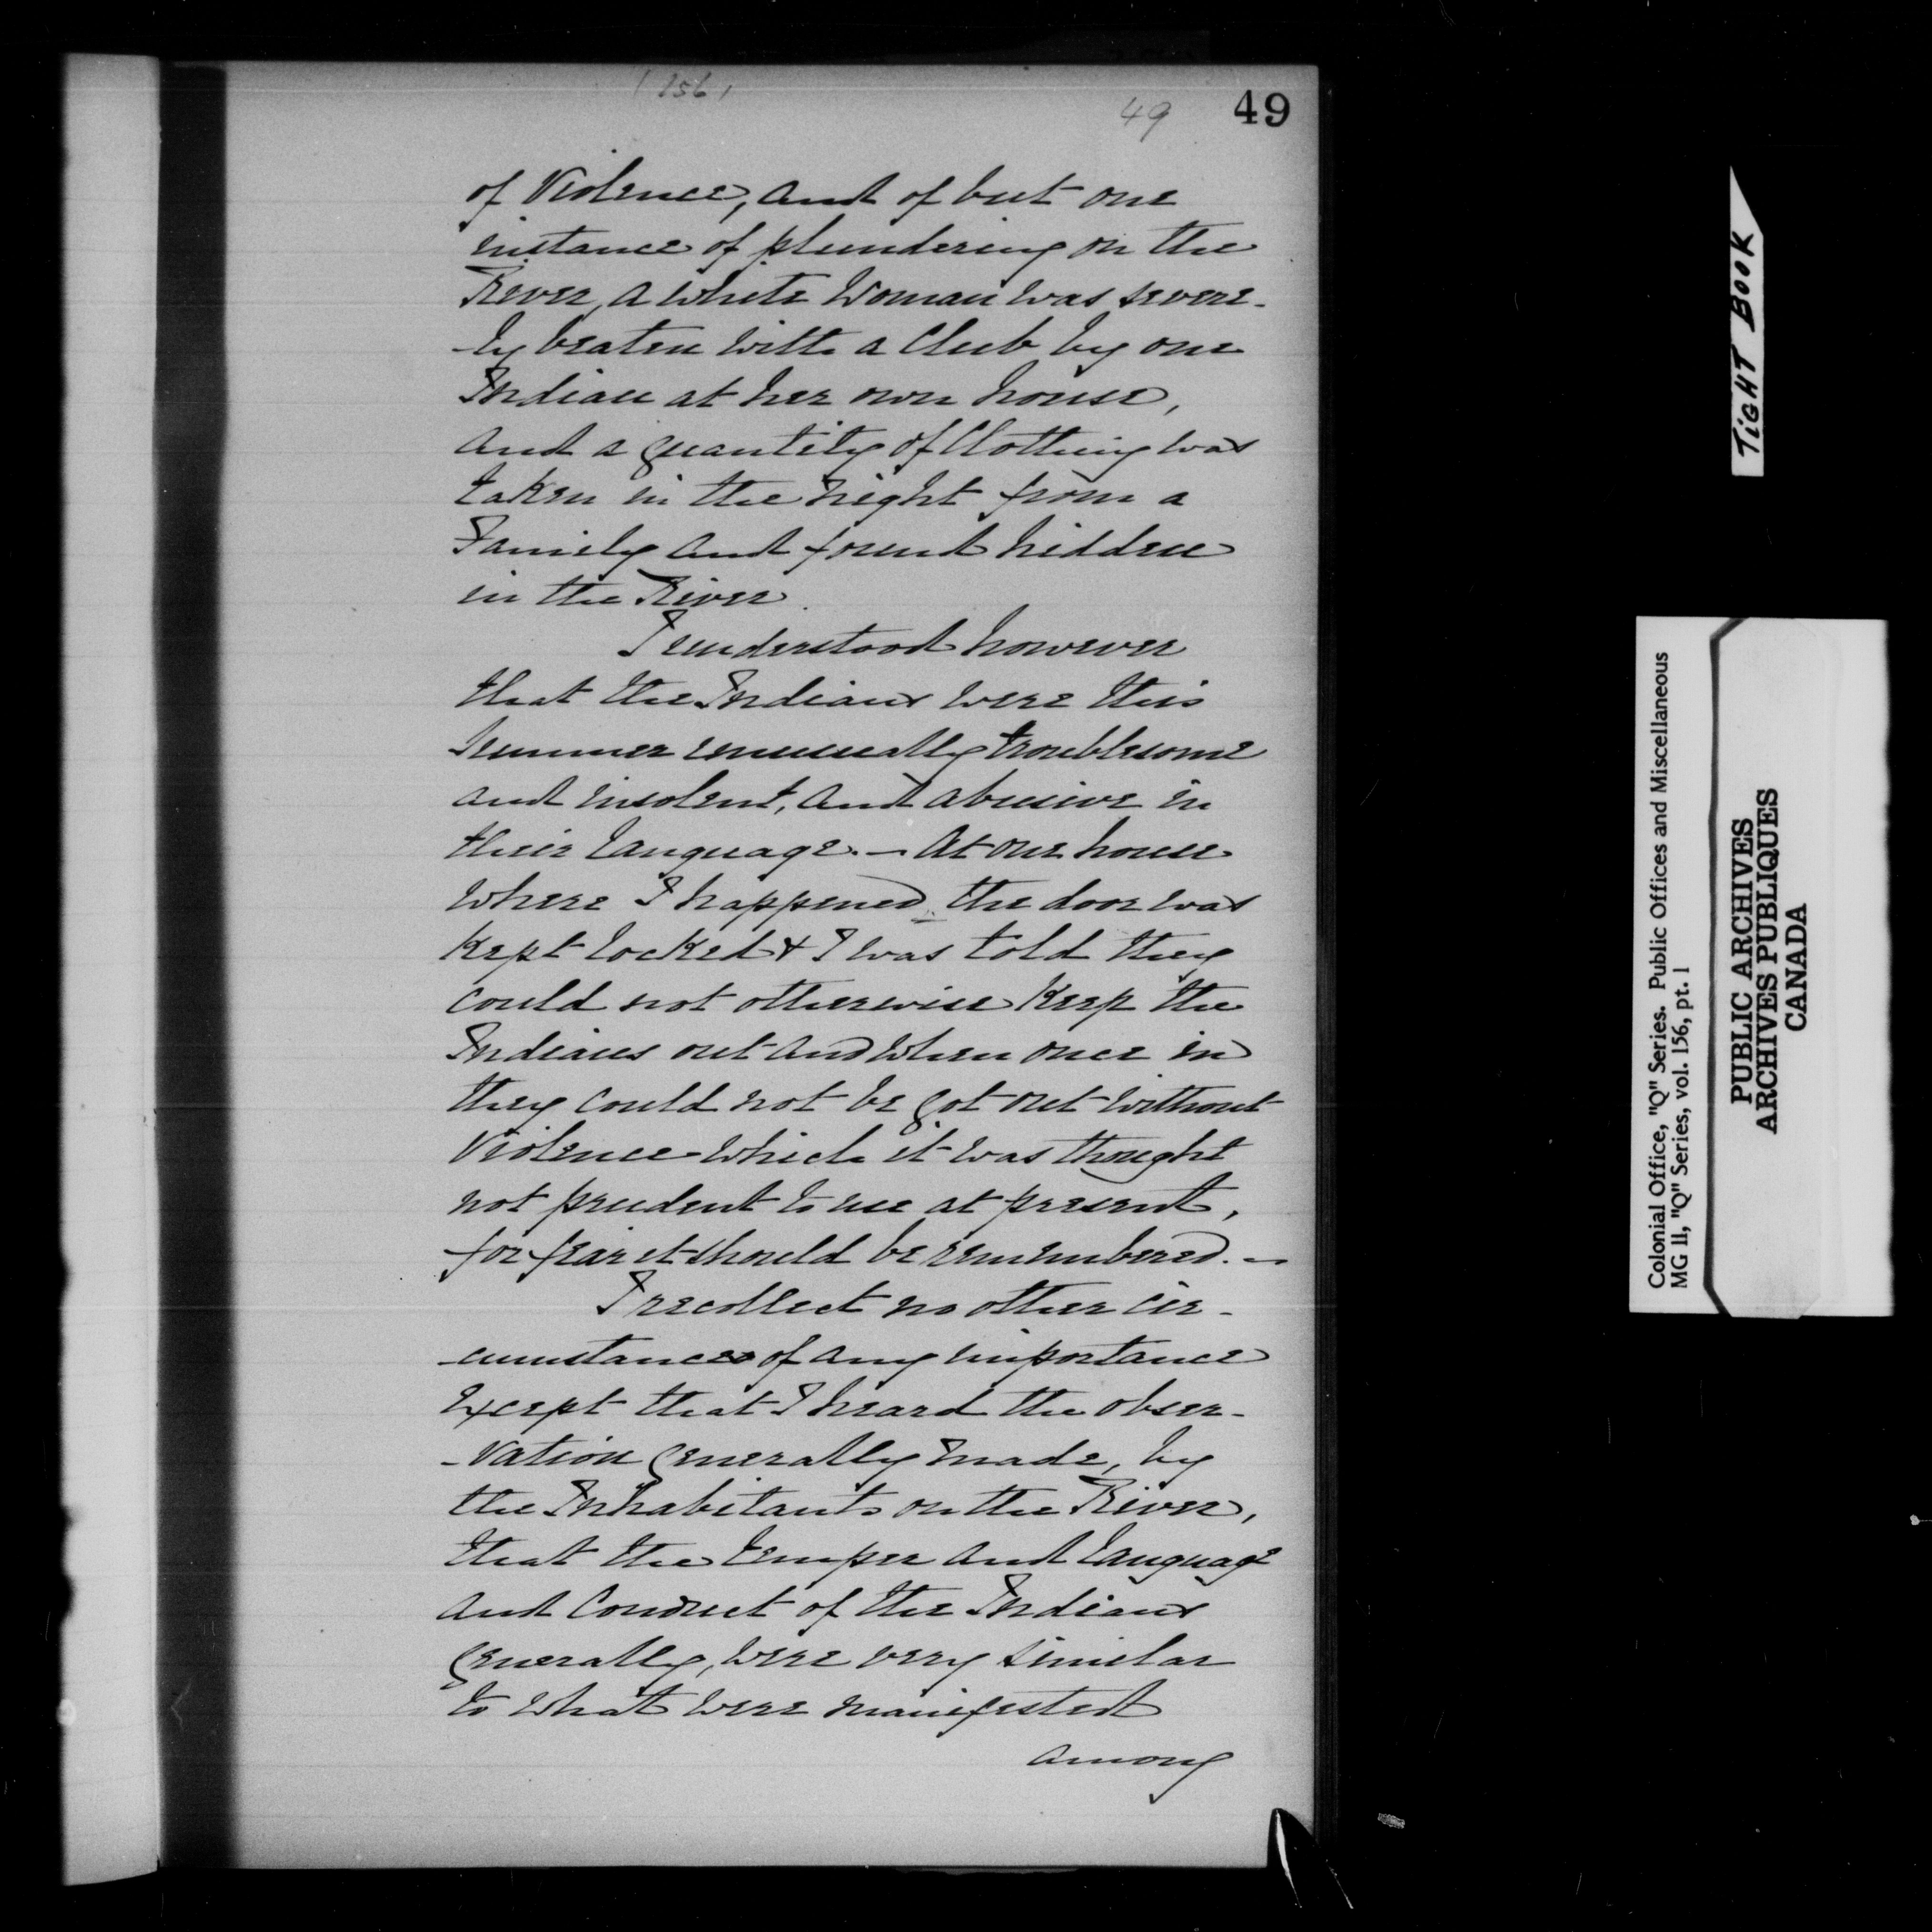 (156)
49 49
of Violence, and of but one
instance of plundering on the
River, a white Woman was severe-
-ly beaten with a Club by one
Indian at her own house,
and a quantity of Clothing was
taken in the night from a
Family and found hidden
in the River.
I understood however
that the Indians were this
Summer unusually troublesome
and insolent, and abusive in
their language. — At one house
where I happened the door was
kept locked & I was told they
could not otherwise keep the
Indians out and when once in
they could not be got out without
Violence which it was thought
not prudent to use at present,
for fear it should be remembered. —
I recollect no other cir-
-cumstances of any importance
Except that I heard the obser-
-vation generally made, by
the Inhabitants on the River,
that the temper and language
and Conduct of the Indians
generally, were very similar
to what were manifested
among
TIGHT BOOK
Colonial Office, "Q" Series. Public Offices and Miscellaneous
MG 11, "Q" Series, vol. 156, pt. 1
PUBLIC ARCHIVES
ARCHIVES PUBLIQUES
CANADA